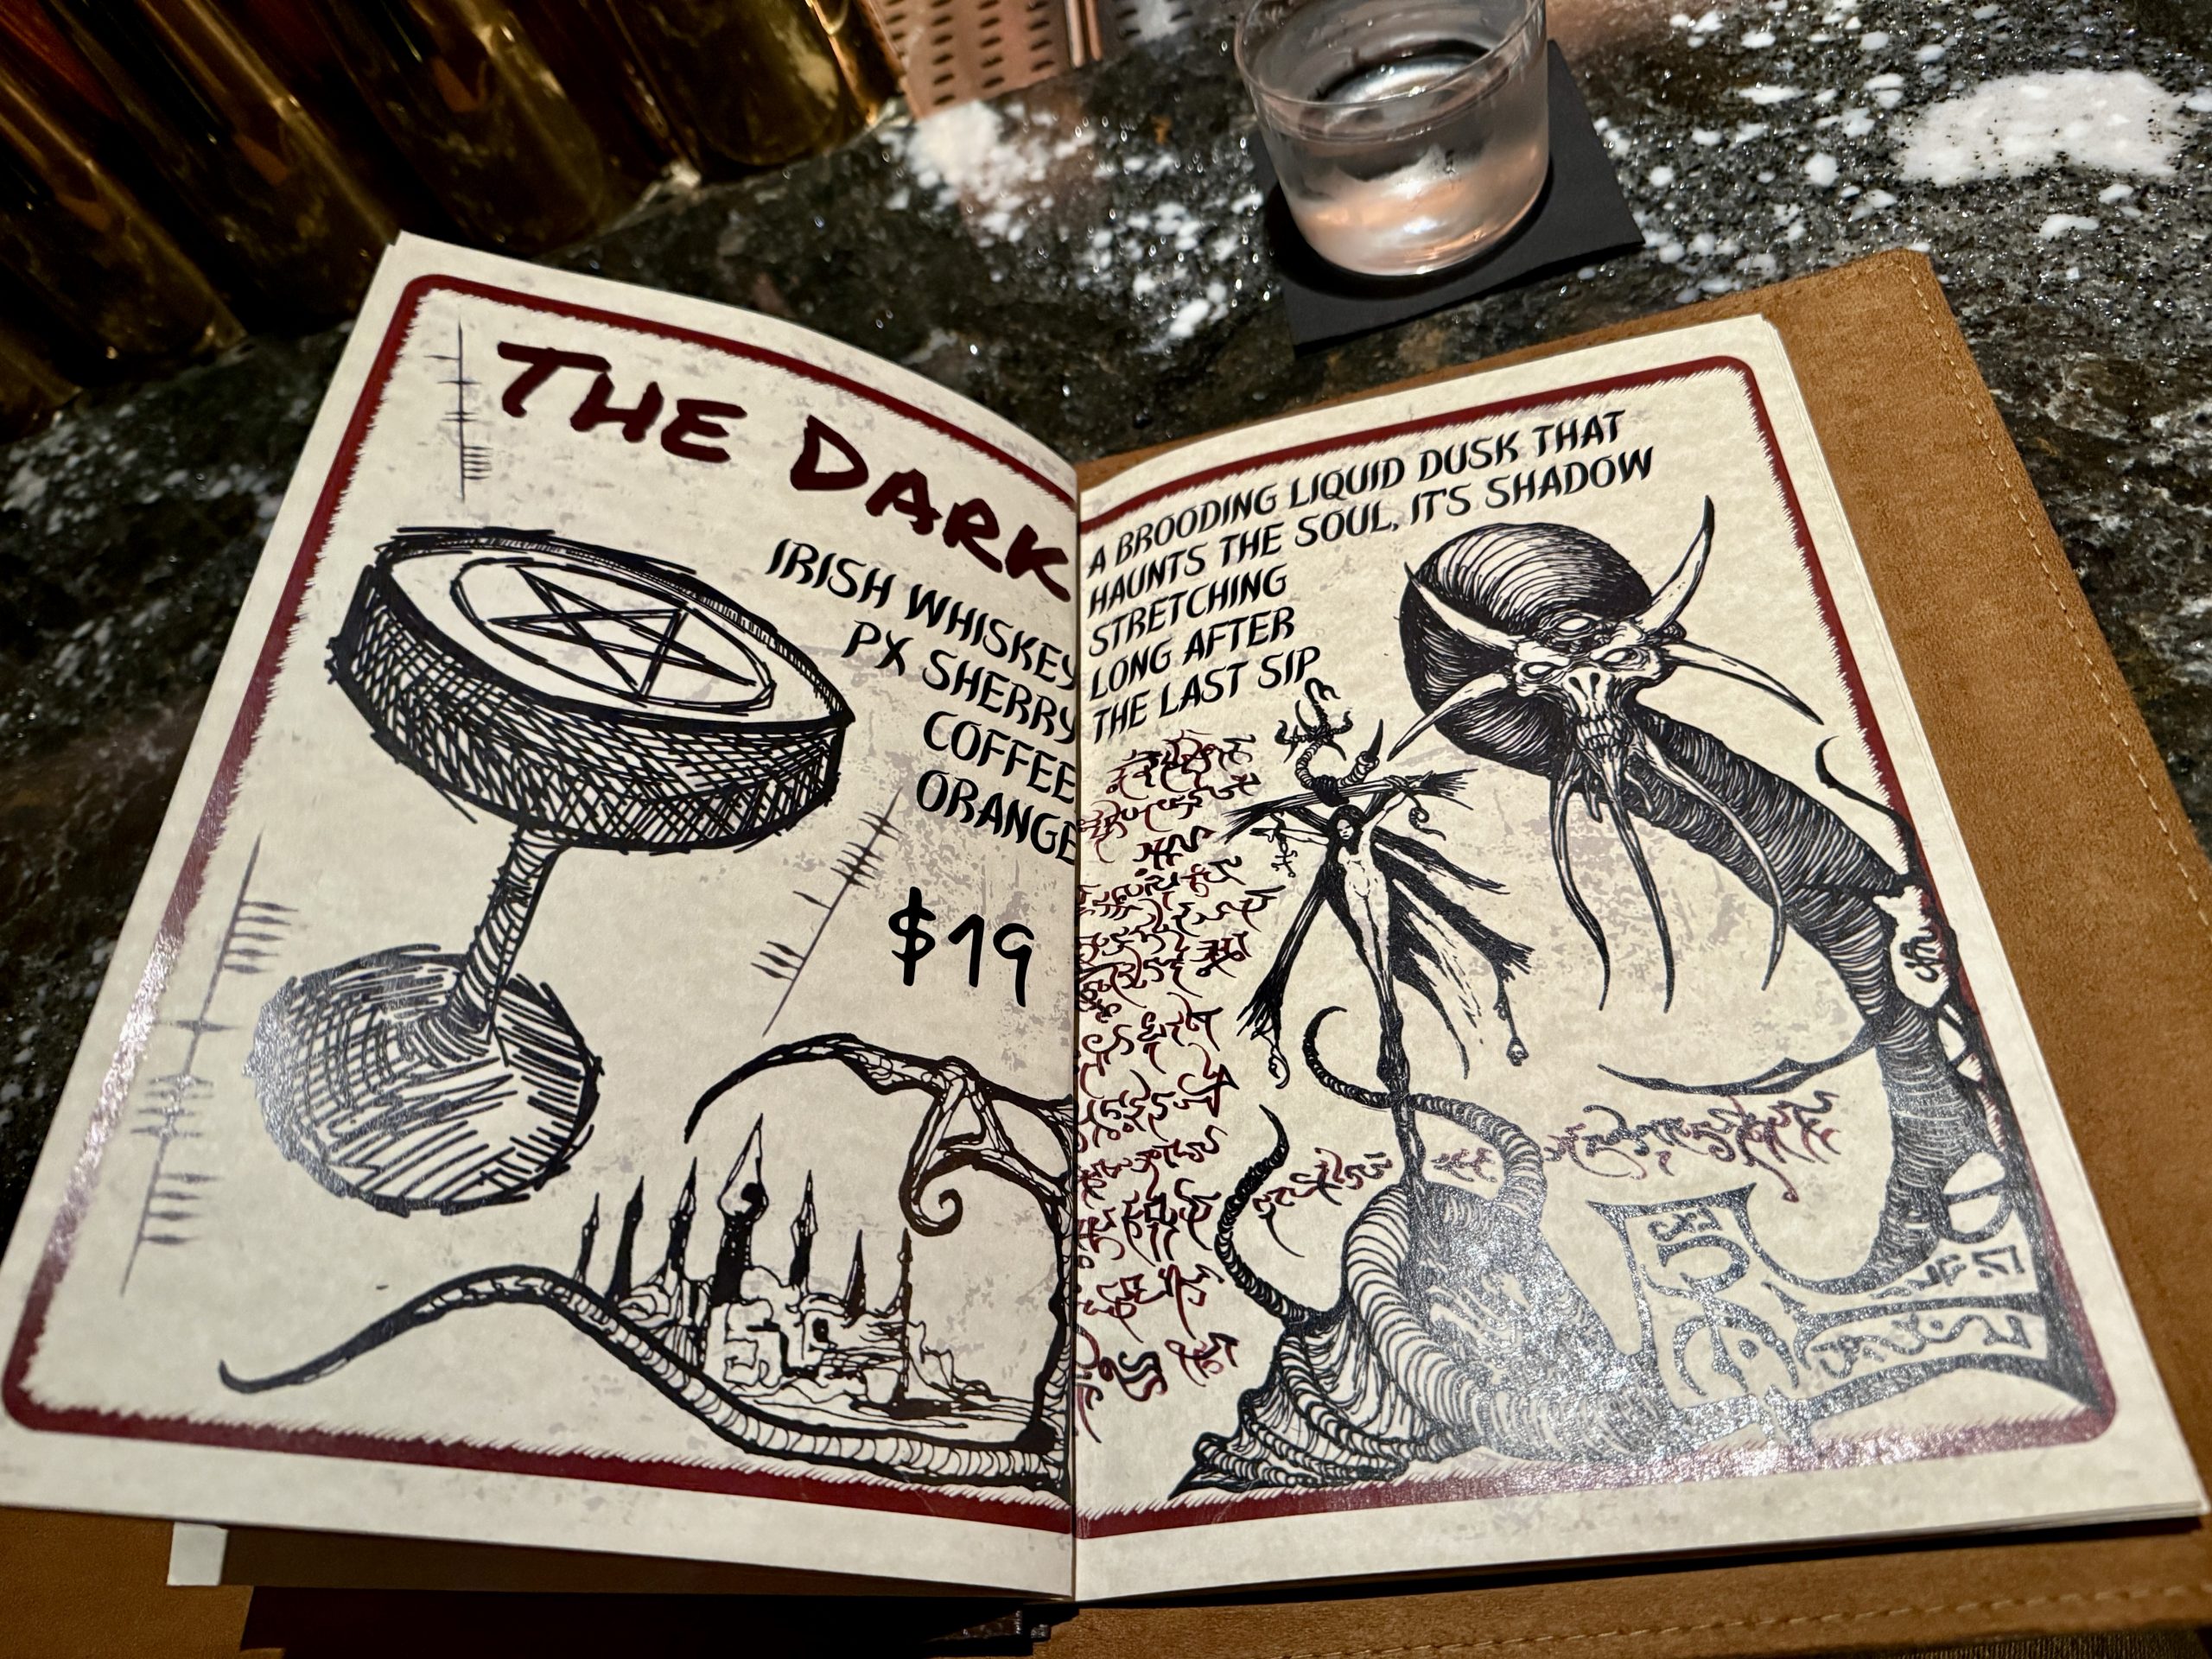 THE DARK
IRISH WHISKEY
PX SHERRY
COFFEE
ORANGE
$19
A BROODING LIQUID DUSK THAT
HAUNTS THE SOUL, IT'S SHADOW
STRETCHING
LONG AFTER
THE LAST SIP